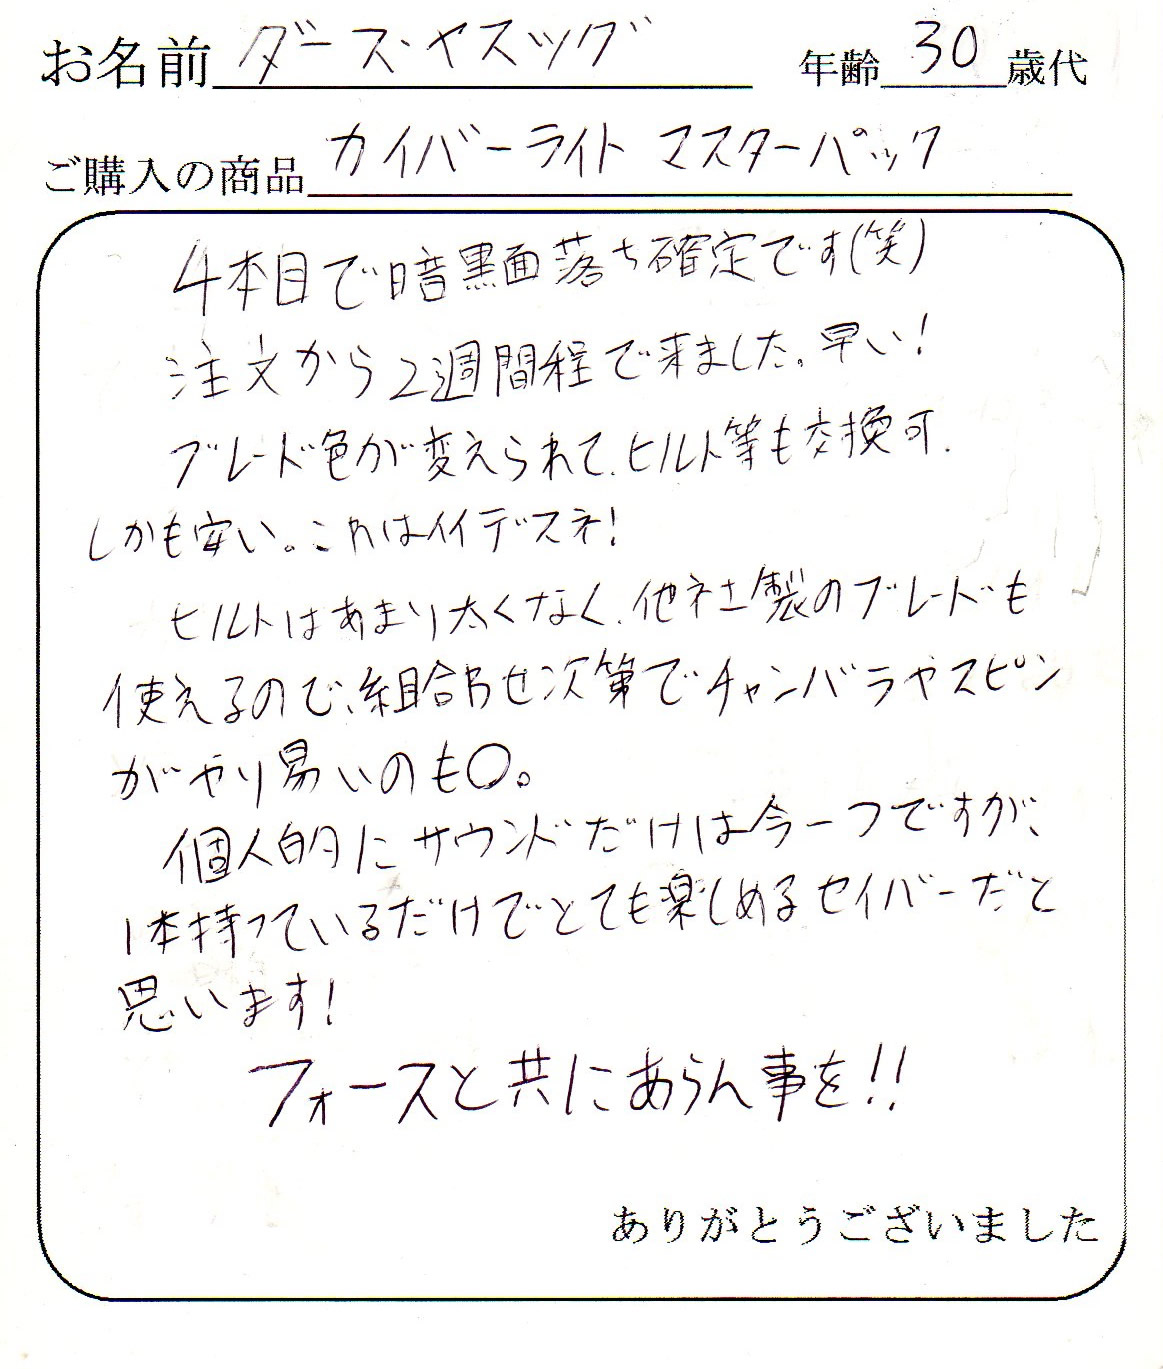 お名前 ダース・ヤスツグ 年齢 30 歳代
ご購入の商品 カイバーライト マスターパック
4本目で暗黒面落ち確定です(笑)
注文から2週間程で来ました。早い!
ブレード色が変えられて、ヒルト等も交換可、
しかも安い。これはイイデスネ!
ヒルトはあまり太くなく、他社製のブレードも
使えるので、組合わせ次第でチャンバラやスピン
がやり易いのも〇。
個人的にサウンドだけは今一つですが、
1本持っているだけでとても楽しめるセイバーだと
思います!
フォースと共にあらん事を!!
ありがとうございました